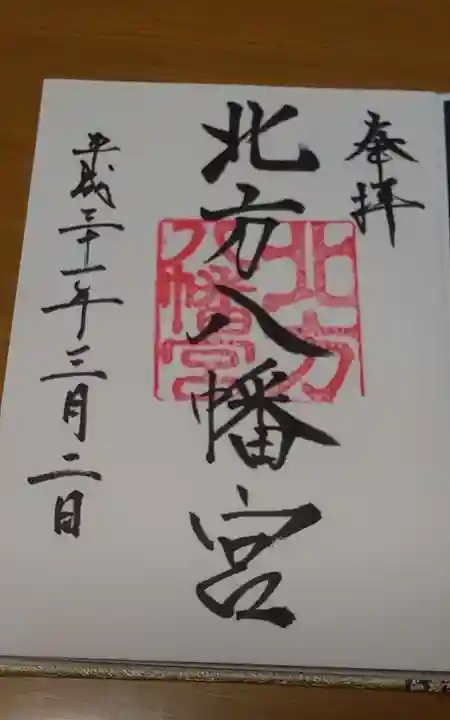 奉拝
北方八幡宮
北方
八幡宮
平成三十一年三月二日